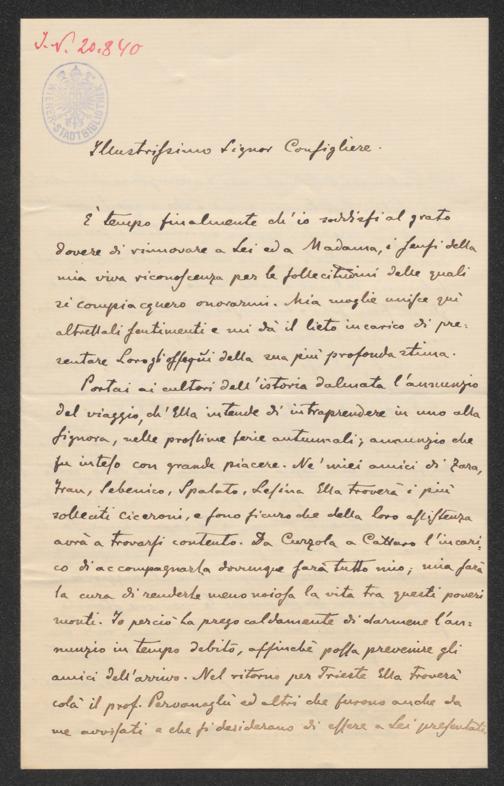 I. N. 20.840
WIENER STADTBIBLIOTHEK
Illustrissimo Signor Consigliere.
È tempo finalmente ch'io soddisfi al grato
dovere di rinnovare a Lei ed a Madama, i sensi della
mia viva riconoscenza per le sollecitudini delle quali
si compiacquero onorarmi. Mia moglie unisce quì
altrettali sentimenti e mi dà il lieto incarico di pre=
sentare Loro gli ossequî della sua più profonda stima.
Portai ai cultori dell'istoria dalmata l'annunzio
del viaggio, ch'Ella intende di intraprendere in uno alla
Signora, nelle prossime ferie autunnali; annunzio che
fu inteso con grande piacere. Ne' miei amici di Zara,
Trau, Sebenico, Spalato, Lesina Ella troverà i più
solleciti ciceroni, e sono sicuro che della loro assistenza
avrà a trovarsi contento. Da Curzola a Cattaro l'incari=
co di accompagnarla dovunque sarà tutto mio; mia sarà
la cura di renderle meno noiosa la vita tra questi poveri
monti. Io perciò La prego caldamente di darmene l'an=
nunzio in tempo debito, affinchè possa prevenire gli
amici dell'arrivo. Nel ritorno per Trieste Ella troverà
colà il prof. Pervanoglù ed altri che furono anche da
me avvisati e che si desiderano di essere a Lei presentati